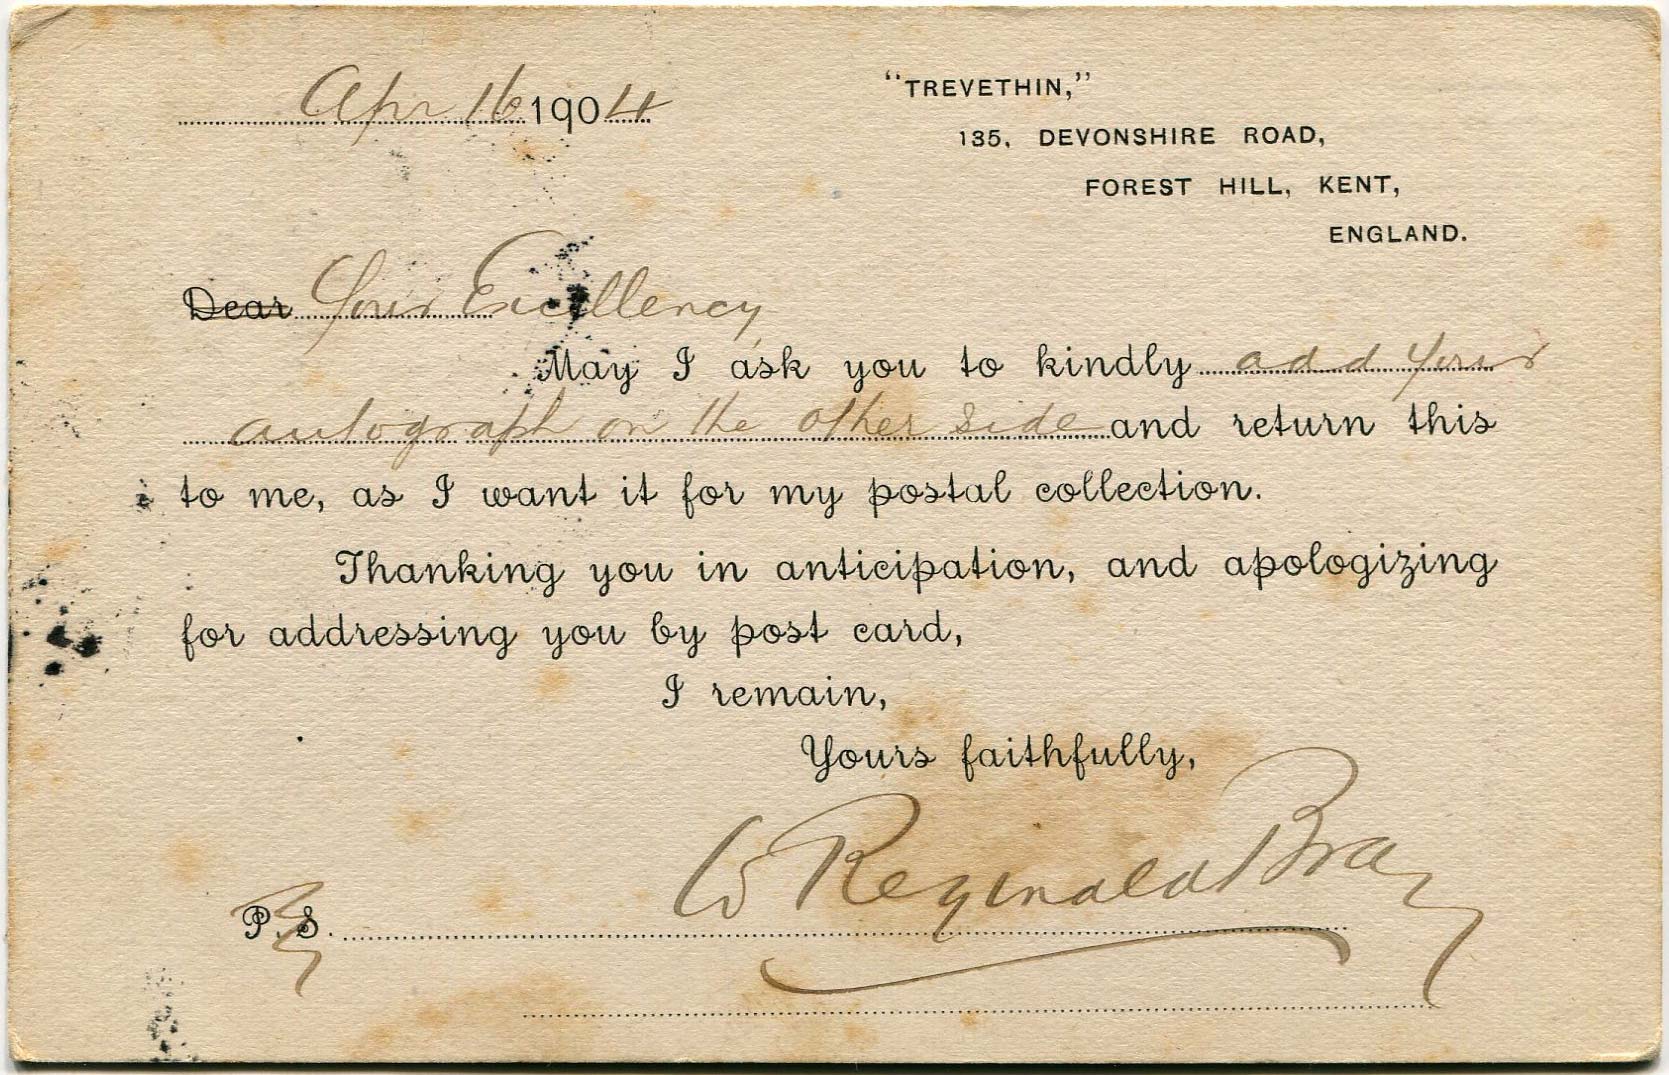 Apr 16 1904
"TREVETHIN,"
135, DEVONSHIRE ROAD,
FOREST HILL, KENT,
ENGLAND.
Dear Your Excellency,
May I ask you to kindly add your
autograph on the other side and return this
to me, as I want it for my postal collection.
Thanking you in anticipation, and apologizing
for addressing you by post card,
I remain,
Yours faithfully,
W Reginald Bray
P.S.